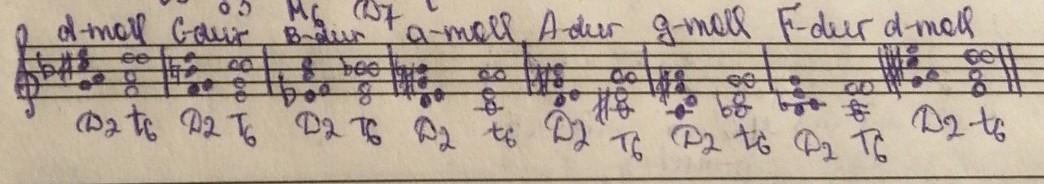 M6 D7
d-moll C-dur B-dur a-moll A-dur g-moll F-dur d-moll
D2 t6 D2 T6 D2 T6 D2 t6 D2 T6 D2 t6 D2 T6 D2 t6